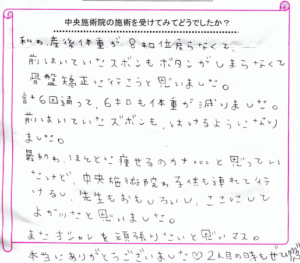 中央施術院の施術を受けてみてどうでしたか？
私は産後体重が8キロ位戻らなくて、
前はいていたズボンもボタンがしまらなくて
骨盤矯正に行こうと思いました。
計6回通って、6キロも体重が減りました。
前はいていたズボンも、はけるようになり
ました。
最初は、ほんとに痩せるのかナ...と思ってい
たけど、中央施術院わ子供も連れて行
けるし、先生もおもしろいし、ここにして
よかったと思いました。
またオシャレを頑張りたいと思いマス。
本当にありがとうございました♡2人目の時もぜひ